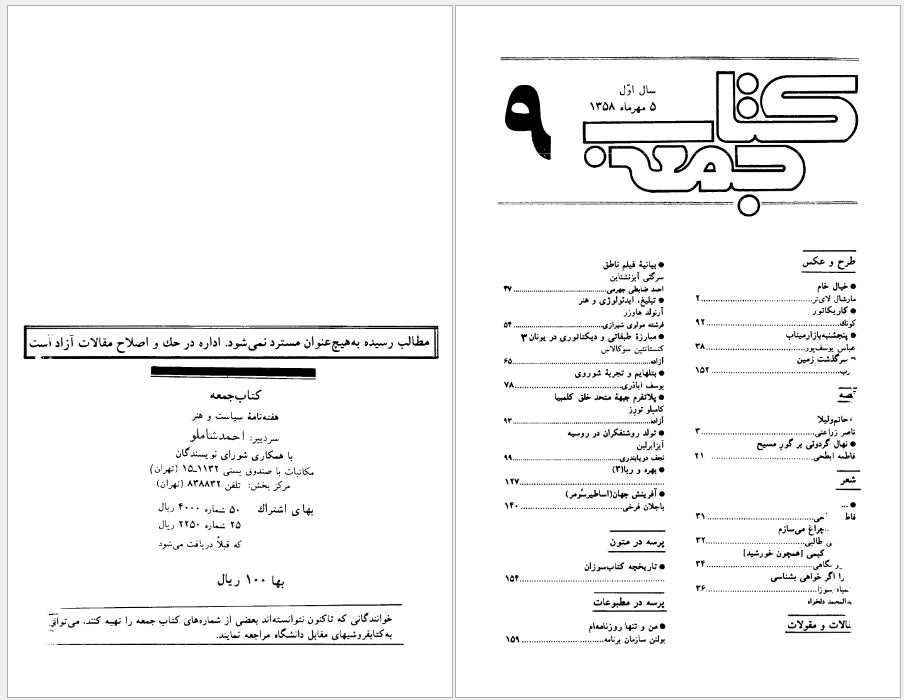 کتاب جمعه
سال اوّل
۵ مهرماه ۱۳۵۸
۹
طرح و عکس
● خیال خام
مارشال لای‌نر ۲
● کاریکاتور
کونك ۹۲
● پنجشنبه‌بازارمیناب
عباس یوسف‌پور ۳۸
سرگذشت زمین
۱۵۲
قصه
حاتم‌ولیلا
ناصر زراعتی ۳
● نهال گردوئی بر گور مسیح
فاطمه ابطحی ۲۱
شعر
● ...
۳۱
چراغ می‌سازم
طالبی ۳۲
کیمی [همچون خورشید]
۳۴
را اگر خواهی بشناسی
۳۶
دلخواه
مقالات و مقولات
● بیانیهٔ فیلم ناطق
سرگئی آیزنشتاین
احمد ضابطی جهرمی ۴۷
● تبلیغ، ایدئولوژی و هنر
آرنولد هاوزر
فرشته مولوی شیرازی ۵۴
● مبارزهٔ طبقاتی و دیکتاتوری در یونان ۳
کنستانتین سوکالاس
آزاده ۶۵
● بتلهایم و تجربهٔ شوروی
یوسف اباذری ۷۸
● پلاتفرم جبههٔ متحد خلق کلمبیا
کامیلو تورز
آزاده ۹۳
● تولد روشنفکران در روسیه
آیزابرلین
نجف دریابندری ۹۹
● بهره و ربا(۳)
۱۲۷
● آفرینش جهان(اساطیرسُومر)
باجلان فرخی ۱۴۰
پرسه در متون
● تاریخچه کتاب‌سوزان
۱۵۴
پرسه در مطبوعات
● من و تنها روزنامه‌ام
بولتن سازمان برنامه ۱۵۹
مطالب رسیده به‌هیچ‌عنوان مسترد نمی‌شود. اداره در حك و اصلاح مقالات آزاد است
کتاب‌جمعه
هفته‌نامهٔ سیاست و هنر
سردبیر: احمدشاملو
با همکاری شورای نویسندگان
مکاتبات با صندوق پستی ۱۱۳۲ـ۱۵ (تهران)
مرکز پخش: تلفن ۸۳۸۸۳۲ (تهران)
بهای اشتراك ۵۰ شماره ۴۰۰۰ ریال
۲۵ شماره ۲۲۵۰ ریال
که قبلاً دریافت می‌شود
بها ۱۰۰ ریال
خوانندگانی که تاکنون نتوانسته‌اند بعضی از شماره‌های کتاب جمعه را تهیه کنند، می‌توانند
به‌کتابفروشیهای مقابل دانشگاه مراجعه نمایند.